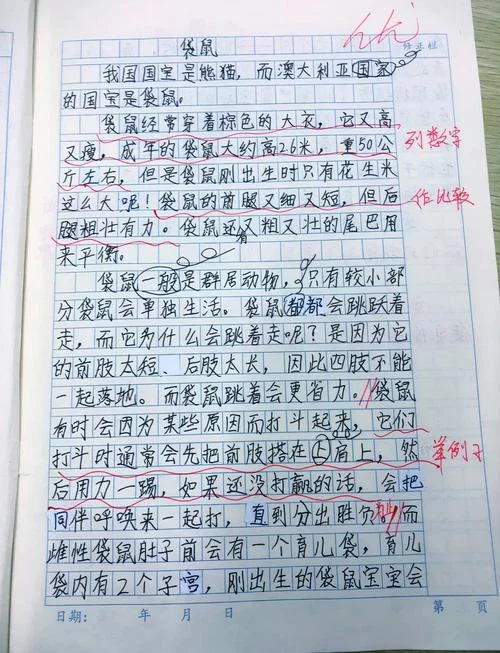 袋鼠
修正栏
我国国宝是熊猫，而澳大利亚国家
的国宝是袋鼠。
袋鼠经常穿着棕色的大衣，它又高
又瘦，成年的袋鼠大约高2.6米，重50公
列数字
斤左右，但是袋鼠刚出生时只有花生米
这么大呢！袋鼠的前腿又细又短，但后
作比较
腿粗壮有力。袋鼠还有又粗又壮的尾巴用
来平衡。
袋鼠一般是群居动物，只有较小部
分袋鼠会单独生活。袋鼠都都会跳跃着
走，而它为什么会跳着走呢？是因为它
的前肢太短、后肢太长，因此四肢不能
一起落地。而袋鼠跳着会更省力。袋鼠
有时会因为某些原因而打斗起来，它们
打斗时通常会先把前肢搭在上肩上，然
举例子
后用力一踢，如果还没打赢的话，会把
同伴呼唤来一起打，直到分出胜负。而
雌性袋鼠肚子前会有一个育儿袋，育儿
袋内有2个子宫，刚出生的袋鼠宝宝会
日期： 年 月 日 第 页